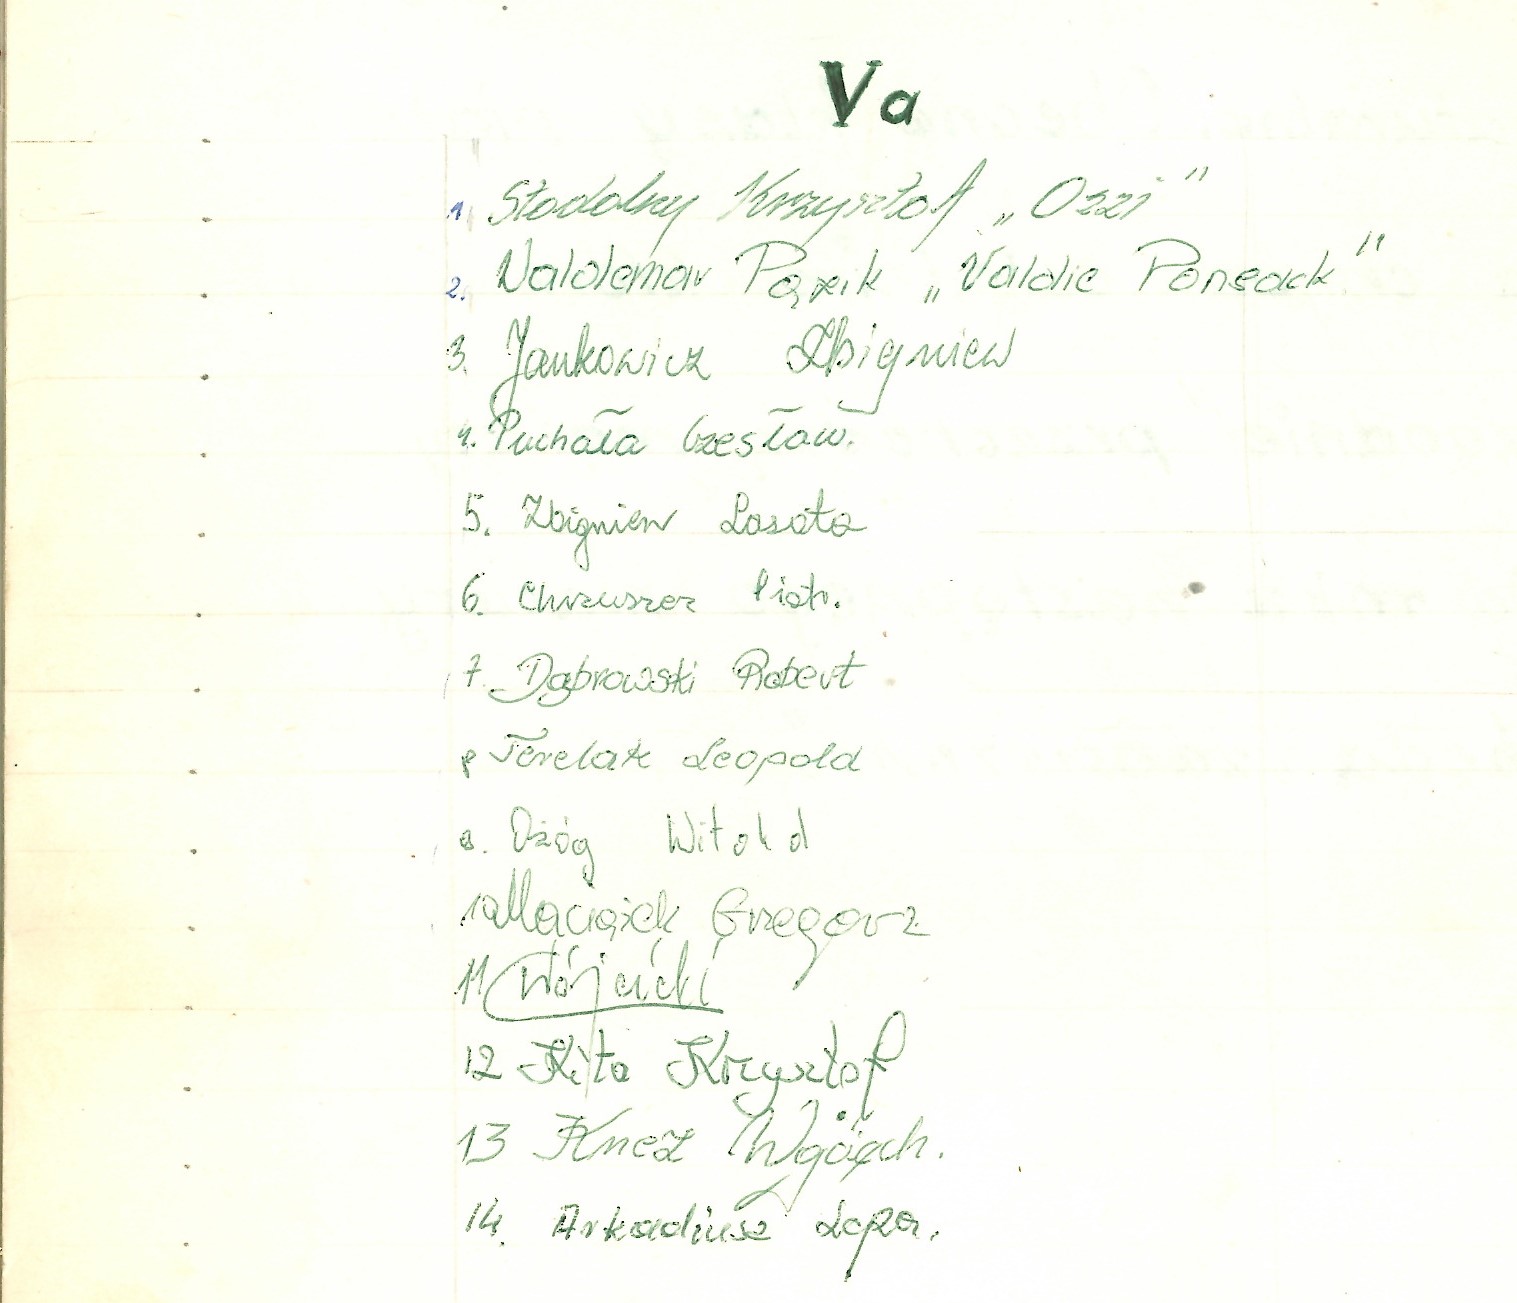 Va
1. Stodolny Krzysztof „Ozzi"
2. Waldemar Pązik „Valdie Ponsack"
3. Jankowicz Zbigniew
4. Puchała Czesław.
5. Zbigniew Lasota
6. Chruszcz Piotr.
7. Dąbrowski Robert
8 Terelak Leopold
9. Ożóg Witold
10 Maciążek Grzegorz
11 Wójcicki
12 Kita Krzysztof
13 Knez
14. Arkadiusz Lepa.